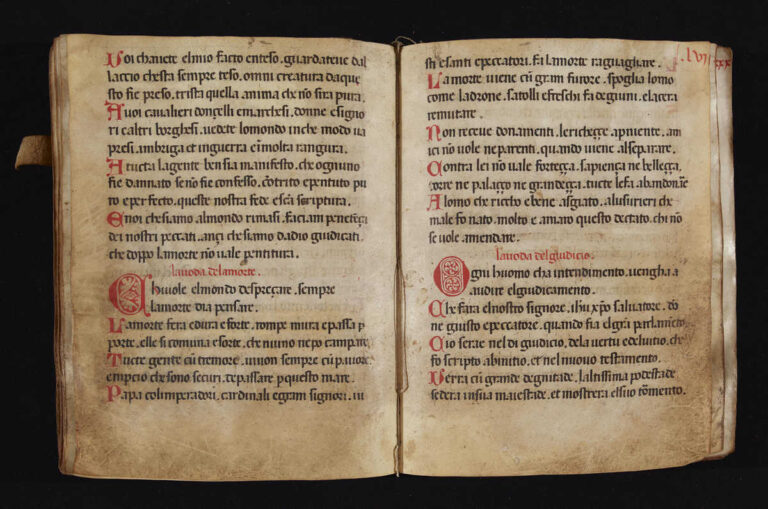 Voi chauete elmio facto enteso. guardateue dal
laccio chesta sempre teso. omni creatura daque
sto fie preso. trista quella anima che nõ sira pura.
A uoi caualieri dongelli emarchesi. donne esigno
ri caltri borghesi. uedete lomondo inche modo ua
presi. ambriga et inguerra cũ molta rangura.
A tucta lagente ben sia manifesto. che ognuno
fie dannato se nõ fie confesso. cõtrito epentuto pu
ro eperfecto. queste nostra fede escã scriptura.
E noi che siamo almondo rimasi. faciam penetẽça
dei nostri peccati. ançi che siamo dadio giudicati.
che doppo lamorte nõ uale pentitura.
lauoda delamorte.
Chi uuole elmondo despreçare. sempre
lamorte dia pensare.
Lamorte fera edura eforte. rompe mura epassa p
porte. elle si comuna esorte. che niuno nepo campare
Tucte gente cũ tremore. uiuon sempre cũ pauore.
empcio che sono securi. depassare p questo mare.
Papa colimperadori. cardinali egram signori. iu
sti esanti epeccatori. fa lamorte raguagliare. lvii xxx
Lamorte uiene cũ gram furore. spoglia lomo
come ladrone. satolli efreschi fa degiuni. elacera
remutare.
Non receue donamenti. le richeççe apniente. am
ici nõ uole ne parenti. quando uiene alseparare.
Contra lei nõ uale forteçça. sapiença ne belleçça.
torre ne palaçço ne grandeçça. tucte lefa abandonare
Alomo che riccho ebene asgiato. alusurieri che
male fo nato. molto e amaro questo dectato. chi nõ
se uole amendare.
lauoda del giudicio.
Ogni huomo cha intendimento. uengha a
audire elgiudicamento.
Che fara elnostro signore. ihũ xp̃o saluatore. do
ne giusto epeccatore. quando fia elgrã parlamẽto
Cio serae nel di giudicio. dela uertu edeluitio. che
fo scripto abinitio. et nel nuouo testamento.
Verra cũ grande degnitade. laltissima podestade.
sedera insua maiestade. et mostrera elsuo tõmento.